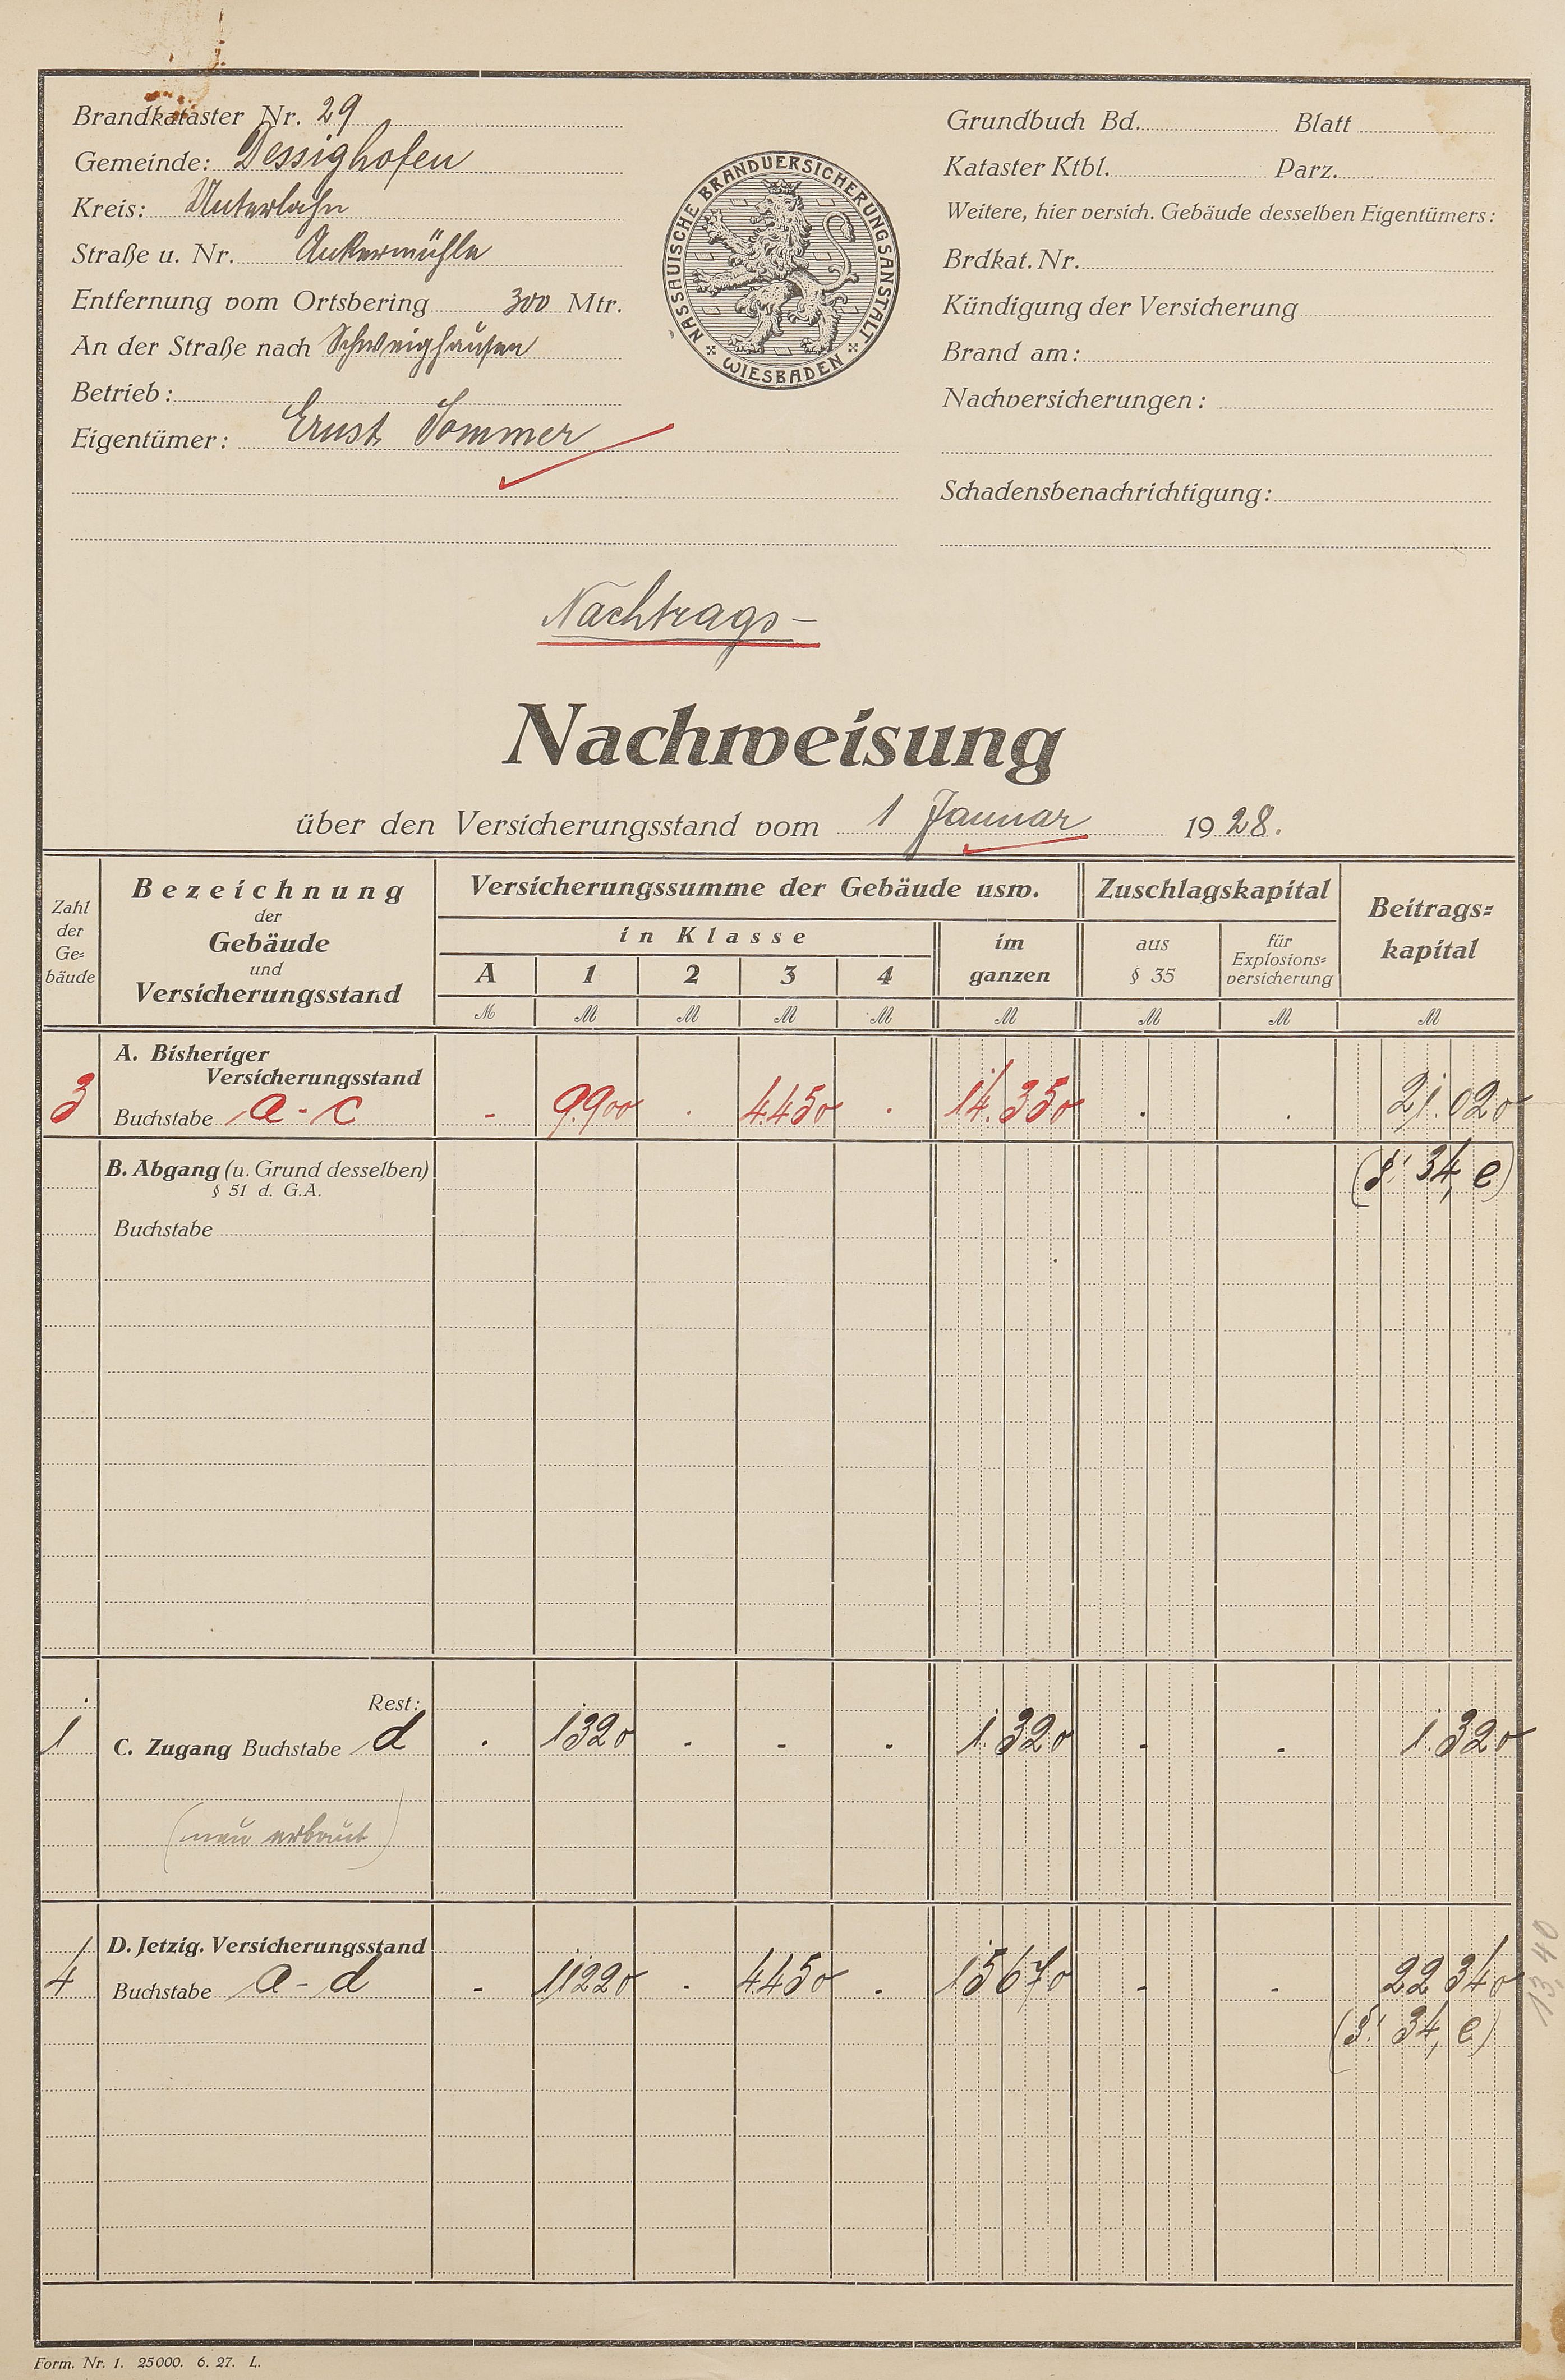 Brandkataster Nr. 29
Gemeinde: Dessighofen
Kreis: Unterlahn
Straße u. Nr. Ankermühle
Entfernung vom Ortsbering 300 Mtr.
An der Straße nach Schweighausen
Betrieb:
Eigentümer: Ernst Sommer
NASSAUISCHE BRANDVERSICHERUNGSANSTALT
WIESBADEN
Grundbuch Bd. Blatt
Kataster Ktbl. Parz.
Weitere, hier versich. Gebäude desselben Eigentümers:
Brdkat. Nr.
Kündigung der Versicherung
Brand am:
Nachversicherungen:
Schadensbenachrichtigung:
Nachtrags-
Nachweisung
über den Versicherungsstand vom 1 Januar 1928.
Zahl der Ge=bäude
Bezeichnung
der
Gebäude
und
Versicherungsstand
Versicherungssumme der Gebäude usw.
in Klasse
A 1 2 3 4
im ganzen
Zuschlagskapital
aus § 35
für Explosions=versicherung
Beitrags=kapital
M M M M M M M M M
A. Bisheriger
Versicherungsstand
3 Buchstabe a - c - 9.900 . 4.450 . 14.350 . . 21.020
B. Abgang (u. Grund desselben) (§ 34, e)
§ 51 d. G.A.
Buchstabe
Rest:
1 C. Zugang Buchstabe d . 1320 - - . 1.320 - - 1.320
(neu erbaut)
D. Jetzig. Versicherungsstand
4 Buchstabe a - d - 11220 . 4.450 . 15670 - - 22340
(§ 34, e)
13,40
Form. Nr. 1. 25000. 6. 27. L.